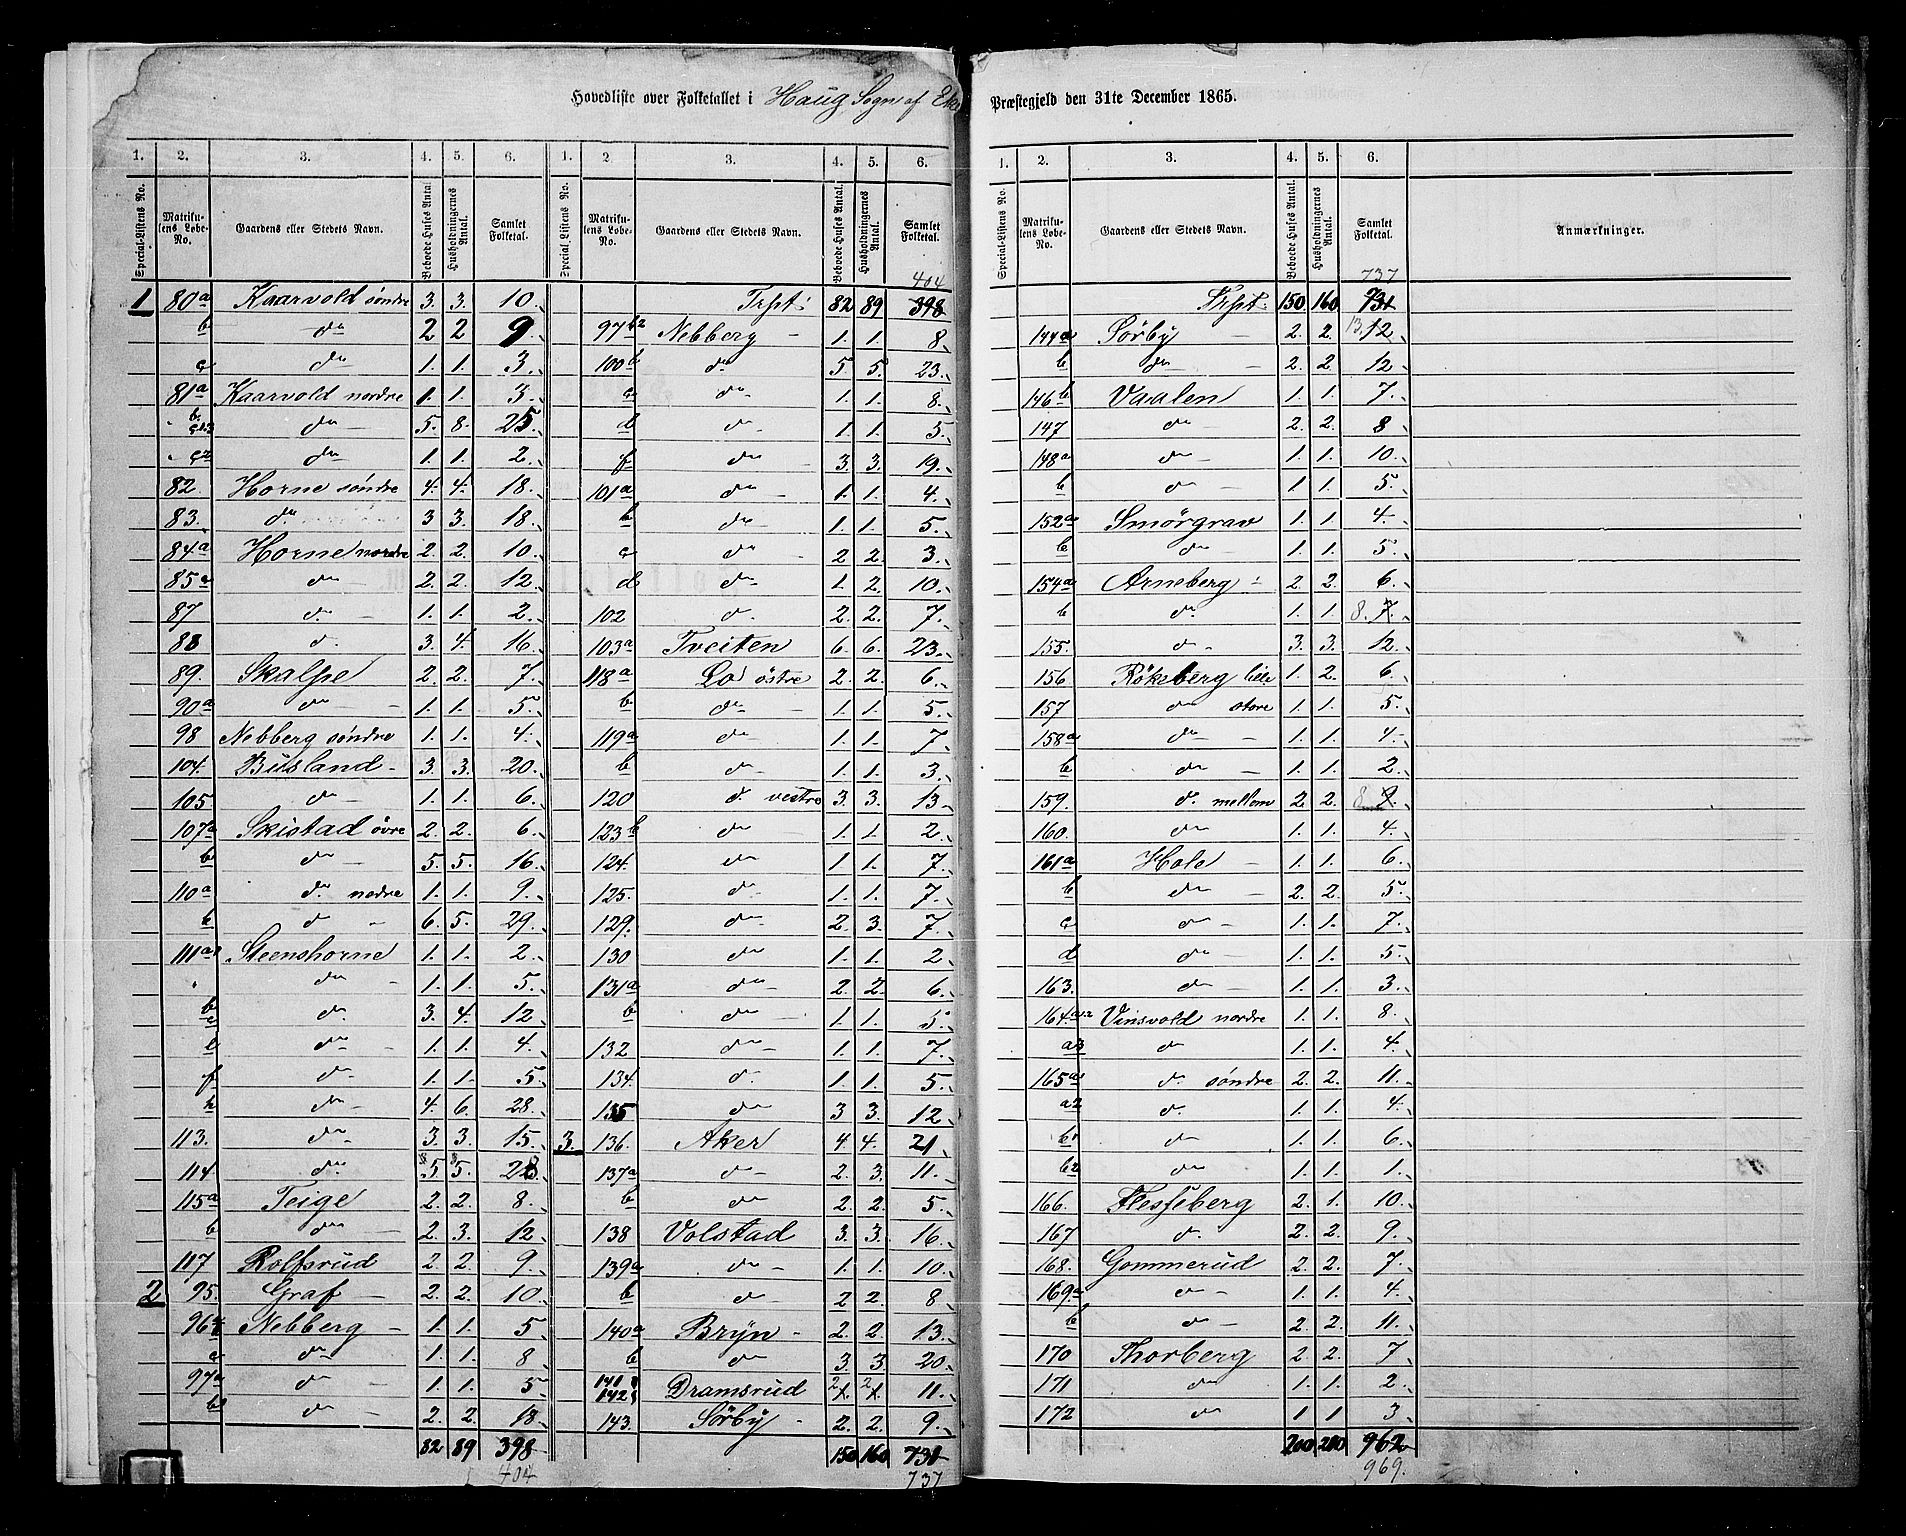 Hovedliste over Folketallet i Haug Sogn af
Præstegjeld den 31te December 1865.
1. 2. 3. 4. 5. 6. 1. 2. 3. 4. 5. 6.
Special-Listens No. Matrikulens Løbe-No. Gaardens eller Stedets Navn. Beboede Huses Antal. Husholdningernes Antal. Samlet Folketal. Special Listens No. Matrikulens Løbe-No. Gaardens eller Stedets Navn. Beboede Huses Antal. Husholdningernes Antal. Samlet Folketal.
1 80a Kaarvold søndre 3. 3. 10.
b do 2 2 9.
c do 1. 1. 3.
81a Kaarvold nordre 1. 1. 3.
do 5. 8. 25.
c2 do 1. 1. 2.
82. Horne søndre 4. 4. 18.
83. do 3 3. 18.
84a Horne nordre 2. 2. 10.
85a do 2. 2. 12.
87 do 1. 1. 2.
88 do 3. 4. 16.
89. Skalpe 2. 2. 7.
90a do 1. 1. 5.
98 Nebberg søndre 1. 1. 4.
104. Büsland 3. 3. 20.
105 do 1. 1. 6.
107a Skistad øvre 2. 2. 6.
b do 5. 5. 16.
110a do nedre 1. 1. 9.
b do 6. 5. 29.
111a Steenshorne 1. 1. 2.
" do 1. 1. 5.
b c do 3. 4. 12
e do 1. 1. 4.
f do 1. 1. 5.
h do 4. 6. 28.
113. do 3. 3. 15.
114 do 5. 5. 28
115a Teige 2. 2. 8.
b do 2. 3. 12
117 Rolfsrud 2. 2. 9.
2 95. Graf 2. 2. 10
96 Nebberg 1. 1. 5
c do 1. 1. 8
97a do 1. 1. 5
b do 2. 2. 18
82 89 398
404
404
Trspt: 82 89 398
97b2 Nebberg 1. 1. 8
100b do 5 5. 23.
c do 1. 1. 8.
d do 1. 1. 5.
f do 3. 3. 19.
101a do 1. 1. 4.
b do 1. 1. 5.
c do 2 2. 3.
d do 1. 2. 10.
102 do 2. 2. 7.
103a Tveiten 6. 6. 23.
118a Lo østre 2. 2. 6.
b do 1. 1. 5.
119a do 1. 1. 7.
b do 1. 1. 3.
120 do vestre 3. 3. 13.
123b do 1. 1. 2.
124. do 1. 1. 7.
125. do 1. 1. 7.
129. do 2. 3. 7.
130 do 1. 1. 2
131a do 2. 2. 6.
b do 1. 1. 5.
132 do 1. 1. 7.
134. do 1. 1. 5.
135 do 3 3. 12
3. 136. Aker 4 4. 21
137a do 2. 3. 11.
b do 2. 2. 5.
138 Volstad 3. 3. 16
139a do 1. 1. 10.
b do 2 2. 8
140a Brÿn 2. 2. 13.
b do 3. 3 20
141 142 Dramsrud 2 2 11.
143. Sørbÿ 2. 2. 9.
150 160 731
737
1. 2. 3. 4. 5. 6.
Special-Listens No. Matrikulens Løbe-No. Gaardens eller Stedets Navn. Beboede Huses Antal. Husholdningernes Antal. Samlet Folketal. Anmærkninger.
737
Trspt: 150 160 731
144a Sørbÿ 2. 2. 13. 12
b do 2. 2. 12
146b Vaalen 1. 1. 7.
147 do 2. 2. 8
148a do 1. 1. 10.
b do 1. 1. 5.
152a Smørgrav 1. 1. 4.
b do 1. 1. 5.
154a Arneberg 2. 2. 6.
b do 1. 1. 8. 7.
155. do 3. 3. 12.
156 Røkeberg lille 1. 2. 6.
157 do store 1. 1. 5.
158a do 1. 1. 4.
b do 1. 1. 2.
159. do mellem 2. 2. 8. 9.
160. do 1. 1. 4.
161a Hole 1. 1. 6.
b do 2. 2. 5.
c do 1. 1. 7.
d do 1. 1. 5.
163. do 1. 1. 3.
164a12 Vinsvold nordre 1. 1. 8.
a3 do 1. 1. 4.
165a1 do søndre 2. 2. 11.
a2 do 1. 1. 4.
b1 do 1. 1. 6.
b2 do 1. 1. 1.
166. Flesseberg 2. 1. 10.
167 do 2. 2. 9.
168. Gommerud 2. 2. 7.
169a do 1. 1. 4.
b do 2. 2. 11.
170 Thorberg 2. 2. 7
171 do 1. 1. 2.
172 do 1 1 3.
200 210 962
969.